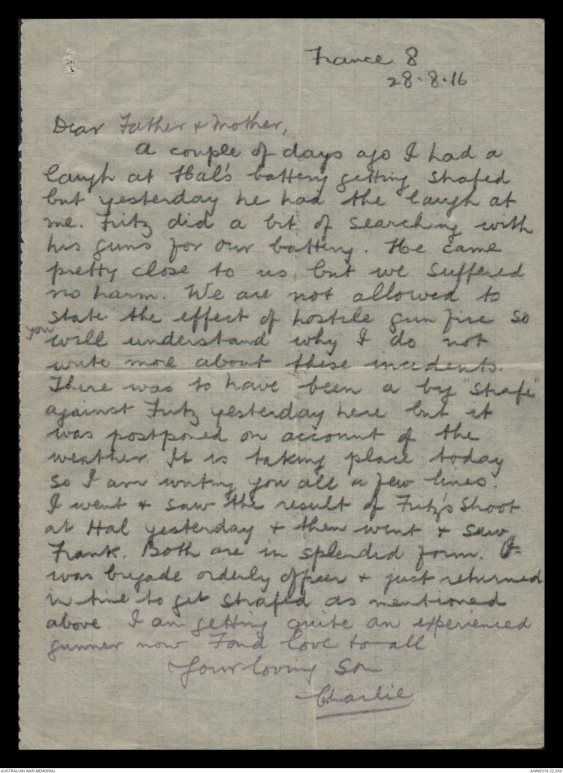 France 8
28.8.16
Dear Father & Mother,
A couple of days ago I had a
laugh at Hal's battery getting strafed
but yesterday he had the laugh at
me. Fritz did a bit of searching with
his guns for our battery. He came
pretty close to us but we suffered
no harm. We are not allowed to
state the effect of hostile gun fire so
you will understand why I do not
write more about these incidents.
There was to have been a big "strafe"
against Fritz yesterday here but it
was postponed on account of the
weather. It is taking place today
so I am writing you all a few lines.
I went & saw the result of Fritz's shoot
at Hal yesterday & then went & saw
Frank. Both are in splendid form. I
was brigade orderly officer & just returned
in time to get strafed as mentioned
above. I am getting quite an experienced
gunner now. Fond love to all
Your loving Son
Charlie
AUSTRALIAN WAR MEMORIAL